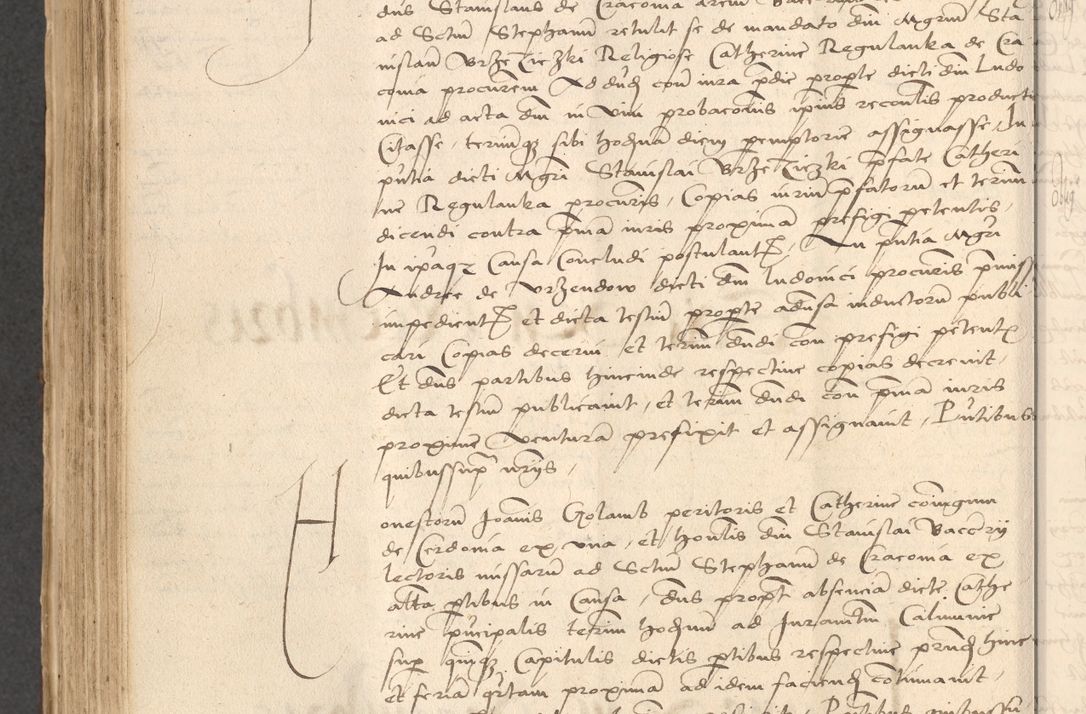 dus Stanislaus de Cracovia
ad Sctum Stephanum retulit se de mandato dni Mgrum Sta
nislaum Urzeczieczki Religiose Catherine Regulanka de Cra
covia procurem Ad dnd con iura pdie propte dicti dni Ludo
vici ad acta dni in vim probacois ipius reconlis producti
Citasse, terminumqz sibi hodiernum diem peremptorie assignasse, In
pntia dicti Mgri Stanislai Urzeczieczki pfate Catheri
ne Regulanka procuris, Copias iurium pfatorum et terminum
dicendi contra pmam iuris proximam prefigi petentis,
In ipaqz Causa Concludi postulantis, An pntia Mgri
Andree de Urzendow dicti dni Ludovici procuris pmissa
impedientis et dicta testium propte adversa inductorum publi
cari Copias decerni et terminum dicendi con prefigi petentis
Et dns partibus hincinde respective copias decrevit,
dicta testium publicavit, et terminum dicendi con pmam iuris
proxime venturam prefixit et assignavit, Pntibus
quibussupra
Honestorum Joannis Golamb peritoris et Catherine coniugum
de Cerdonia ex una, et honlis dni Stanislai Baccrii
lectoris missarum ad Sctum Stephanum de Cracovia ex
altra ptibus in Causa, dns propt absenciam dicte Cathe
rine principalis terminum hodiernum ad Juramentum Calumnie
sup quinqz Capitulis dictis ptibus respective hinc
et feriam quartam proximam ad idem faciend continuavit,